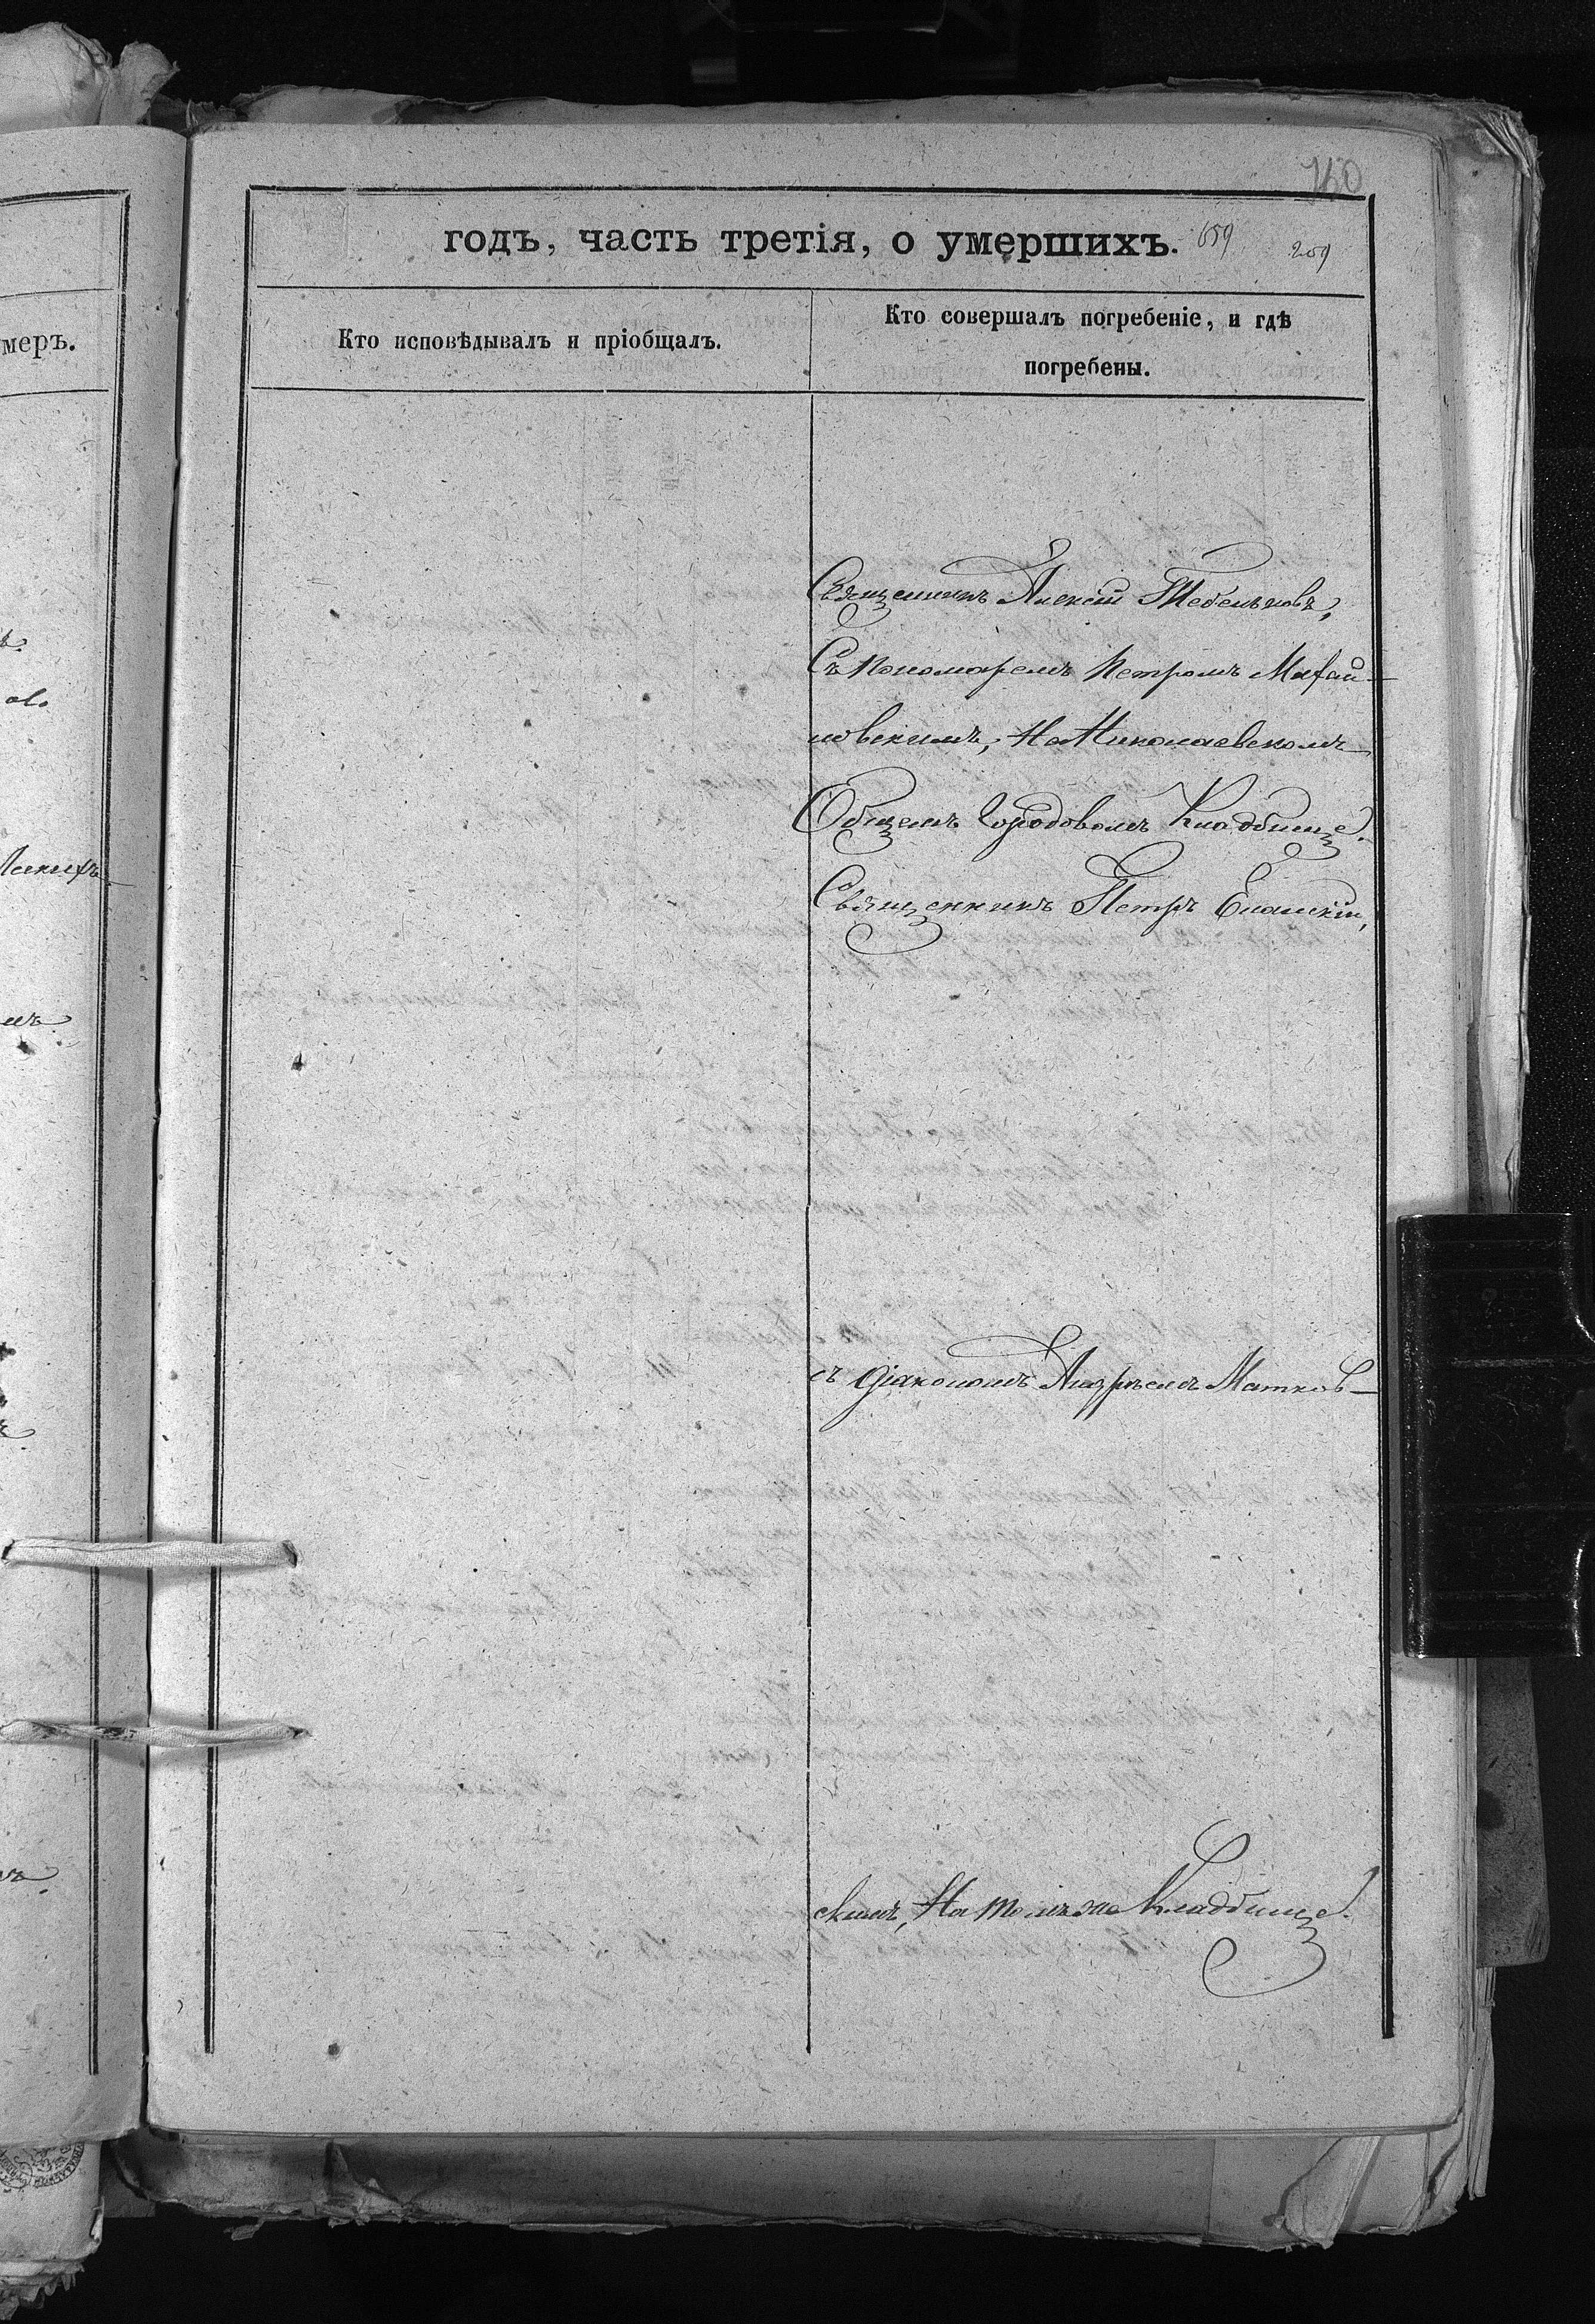 150
годъ, часть третія, о умершихъ. 659 259
Кто исповѣдывалъ и пріобщалъ.
Кто совершалъ погребеніе, и гдѣ
погребены.
меръ.
Священникъ Алексій Тебеньковъ,
Съ Пономаремъ Петромъ Мафай-
ловскимъ, На Николаевскомъ
Общемъ Городовомъ Кладбище.
Священникъ Петръ Еланскій,
съ Діакономъ Андреемъ Матков-
скимъ, На томъ же Кладбище.